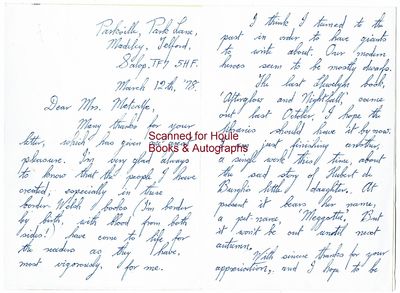 Parkville, Park Lane,
Madeley, Telford.
Salop. TF7 5HF.
March 12th, '78.
Dear Mrs. Metcalfe,
Many thanks for your
letter, which has given me great
pleasure. I'm very glad always
to know that the people I have
created, especially in these
border Welsh books (I'm border
by birth, with blood from both
sides!) have come to life for
the readers as they have,
most vigorously, for me.
I think I turned to the
past in order to have giants
to write about. Our modern
heroes seem to be mostly dwarfs.
The last Llewelyn book,
'Afterglow and Nightfall', came
out last October. I hope the
libraries should have it by now.
just finishing another,
a single work this time, about
the sad story of Hubert de
Burgh's little daughter. At
present it bears her name,
a pet name, 'Meggotta'. But
it won't be out until next
autumn.
With sincere thanks for your
appreciation, and I hope to be
Scanned for Houle
Books & Autographs